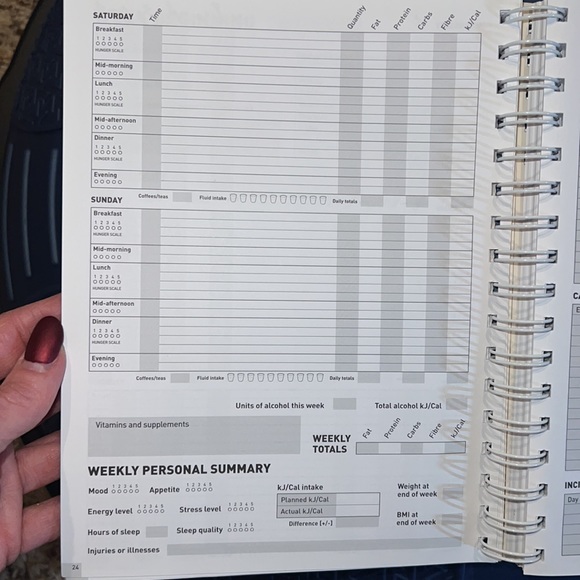 SATURDAY Time Quantity Fat Protein Carbs Fibre kJ/Cal
Breakfast
1 2 3 4 5
HUNGER SCALE
Mid-morning
Lunch
1 2 3 4 5
HUNGER SCALE
Mid-afternoon
Dinner
1 2 3 4 5
HUNGER SCALE
Evening
Coffees/teas Fluid intake Daily totals
SUNDAY
Breakfast
1 2 3 4 5
HUNGER SCALE
Mid-morning
Lunch
1 2 3 4 5
HUNGER SCALE
Mid-afternoon
Dinner
1 2 3 4 5
HUNGER SCALE
Evening
Coffees/teas Fluid intake Daily totals
Units of alcohol this week Total alcohol kJ/Cal
Vitamins and supplements
WEEKLY TOTALS Fat Protein Carbs Fibre kJ/Cal
WEEKLY PERSONAL SUMMARY
Mood 1 2 3 4 5 Appetite 1 2 3 4 5 kJ/Cal intake Weight at end of week
Energy level 1 2 3 4 5 Stress level 1 2 3 4 5 Planned kJ/Cal
Actual kJ/Cal
Hours of sleep Sleep quality 1 2 3 4 5 Difference [+/-] BMI at end of week
Injuries or illnesses
24
Day